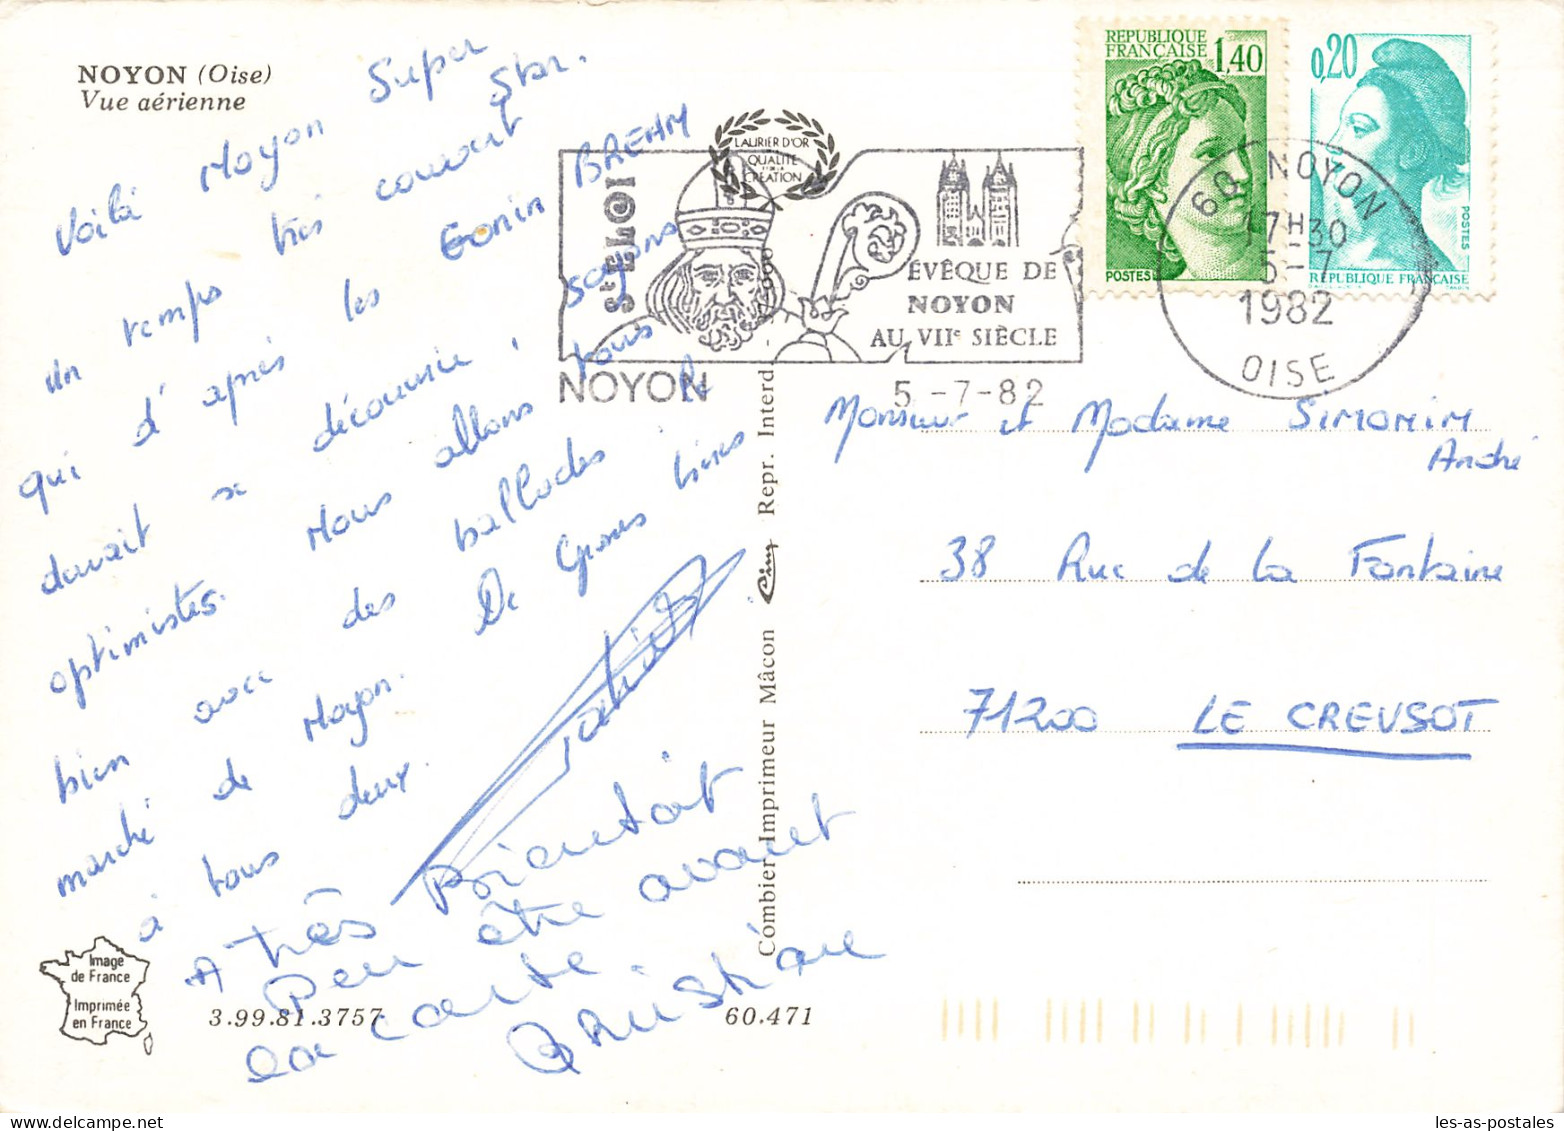 NOYON (Oise)
Vue aérienne
Voilà Noyon Super Star.
un temps très couvert
qui d'après les Gonin BREHM
devrait se découvrir, soyons
optimistes. Nous allons tous
bien avec des ballades
marché de Noyon. De Grosses bises
à tous deux.
A très Bientôt
Peu être avant
la carte.
LAURIER D'OR
QUALITÉ
CRÉATION
St ELOI
ÉVÊQUE DE
NOYON
AU VIIe SIÈCLE
NOYON
5 -7-82
RÉPUBLIQUE
FRANÇAISE 1,40
POSTES
0,20
POSTES
RÉPUBLIQUE FRANÇAISE
60 NOYON
17H30
5-7
1982
OISE
Monsieur et Madame SIMONIN
André
38 Rue de La Fontaine
71200 LE CREUSOT
Combier Imprimeur Mâcon Cim Repr. Interd
Image
de France
Imprimée
en France
3.99.81.3757
60.471
les-as-postales